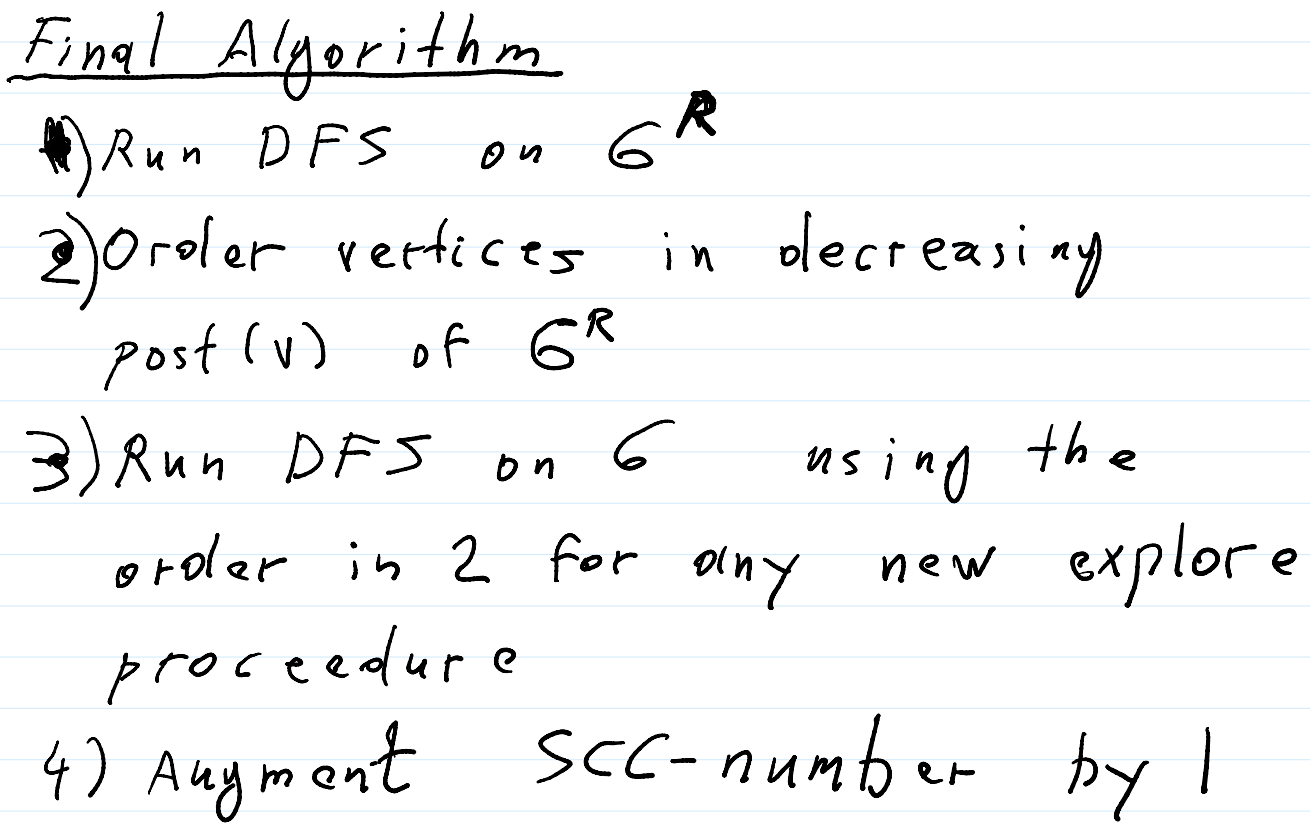 Final Algorithm
1) Run DFS on G^R
2) Order vertices in decreasing
post(v) of G^R
3) Run DFS on G using the
order in 2 for any new explore
proceedure
4) Augment SCC-number by 1